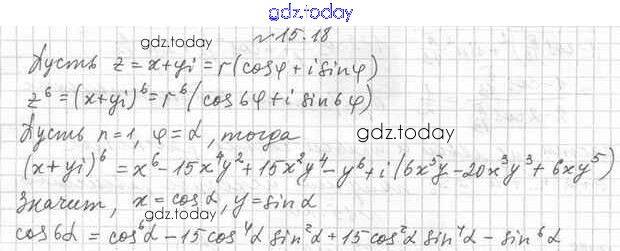 gdz.today
№15.18
gdz.today
Пусть z = x+yi = r(cosφ + i sinφ)
z⁶ = (x+yi)⁶ = r⁶(cos6φ + i sin6φ)
Пусть r=1, φ=α, тогда
gdz.today
(x+yi)⁶ = x⁶ - 15x⁴y² + 15x²y⁴ - y⁶ + i(6x⁵y - 20x³y³ + 6xy⁵)
Значит, x = cosα, y = sinα
gdz.today
cos6α = cos⁶α - 15cos⁴α sin²α + 15cos²α sin⁴α - sin⁶α
gdz.today